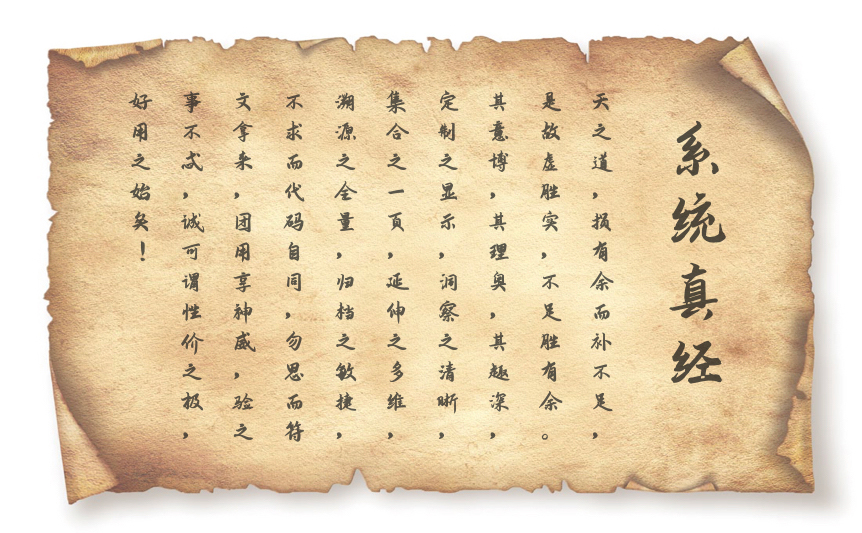 系统真经
天之道，损有余而补不足，
是故虚胜实，不足胜有余。
其意博，其理奥，其趣深，
定制之显示，洞察之清晰，
集合之一页，延伸之多维，
溯源之全量，归档之敏捷，
不求而代码自同，勿思而符
文拿来，团用享神威，验之
事不忒，诚可谓性价之极，
好用之始矣！